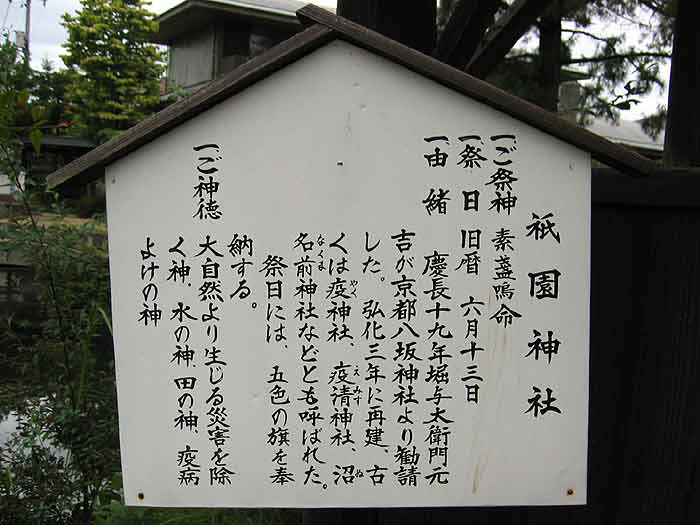 祇園神社
一ご祭神 素盞嗚命
一祭日 旧暦 六月十三日
一由緒
慶長十九年堀与太衛門元
吉が京都八坂神社より勧請
した。弘化三年に再建、古
くは疫神社、疫清神社、沼
やく えみす ぬ
名前神社などとも呼ばれた。
なくま
祭日には、五色の旗を奉
納する。
一ご神徳
大自然より生じる災害を除
く神、水の神、田の神、疫病
よけの神